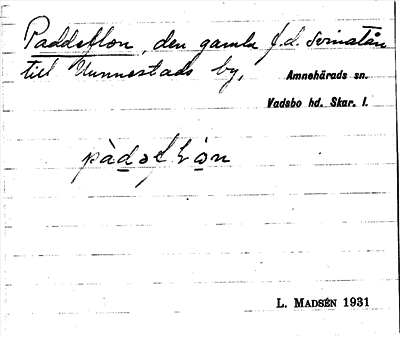 Paddeflon, den gamla f.d. svinatån
till Unnerstads by,
Amnehärads sn.
Vadsbo hd. Skar. l.
L. MADSÉN 1931